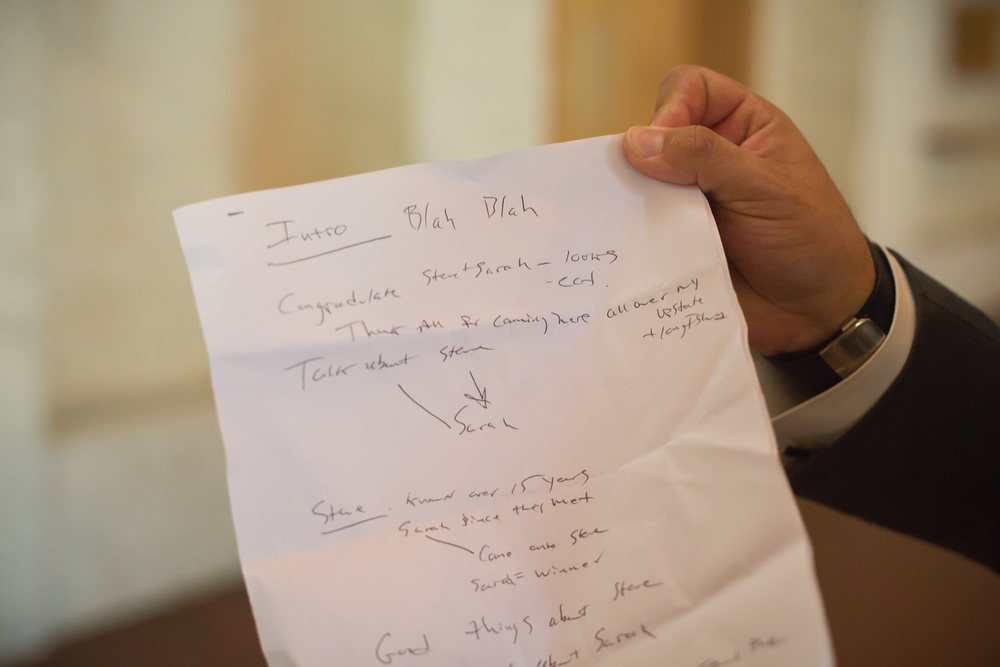 - Intro Blah Blah
Congradulate Steve + Sarah - looking
- good.
Thank All for coming here all over NY
Upstate
+ Long Island
Talk about Steve
Sarah
Steve. Known over 15 years
Sarah since they met
Came onto Steve
Sarah = winner
Good things about Steve
about Sarah